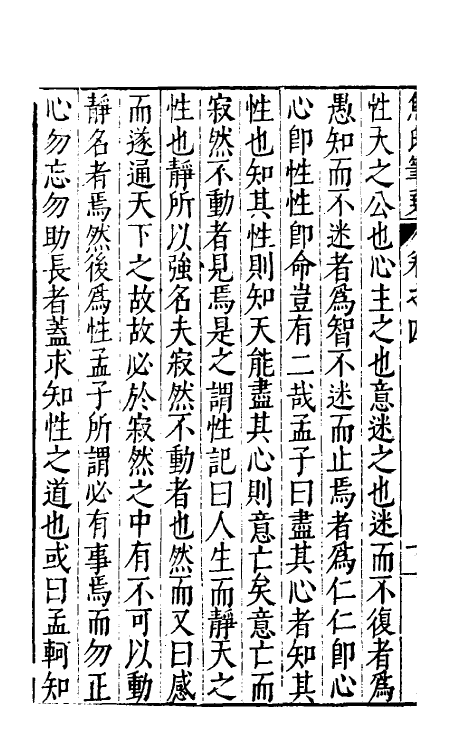 性天之公也心主之也意迷之也迷而不復者為
愚知而不迷者為智不迷而止焉者為仁仁卽心
心卽性性卽命豈有二哉孟子曰盡其心者知其
性也知其性則知天能盡其心則意亡矣意亡而
寂然不動者見焉是之謂性記曰人生而靜天之
性也靜所以強名夫寂然不動者也然而又曰感
而遂通天下之故故必於寂然之中有不可以動
靜名者焉然後為性孟子所謂必有事焉而勿正
心勿忘勿助長者蓋求知性之道也或曰孟軻知